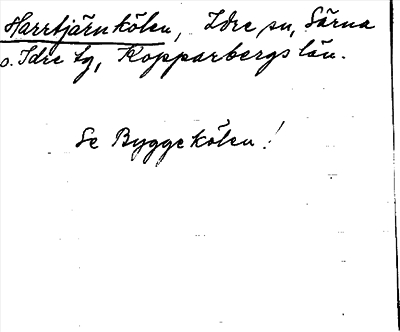 Harrtjärnkölen, Idre sn, Särna
o. Idre tg, Kopparbergs län.
Se Byggekölen!